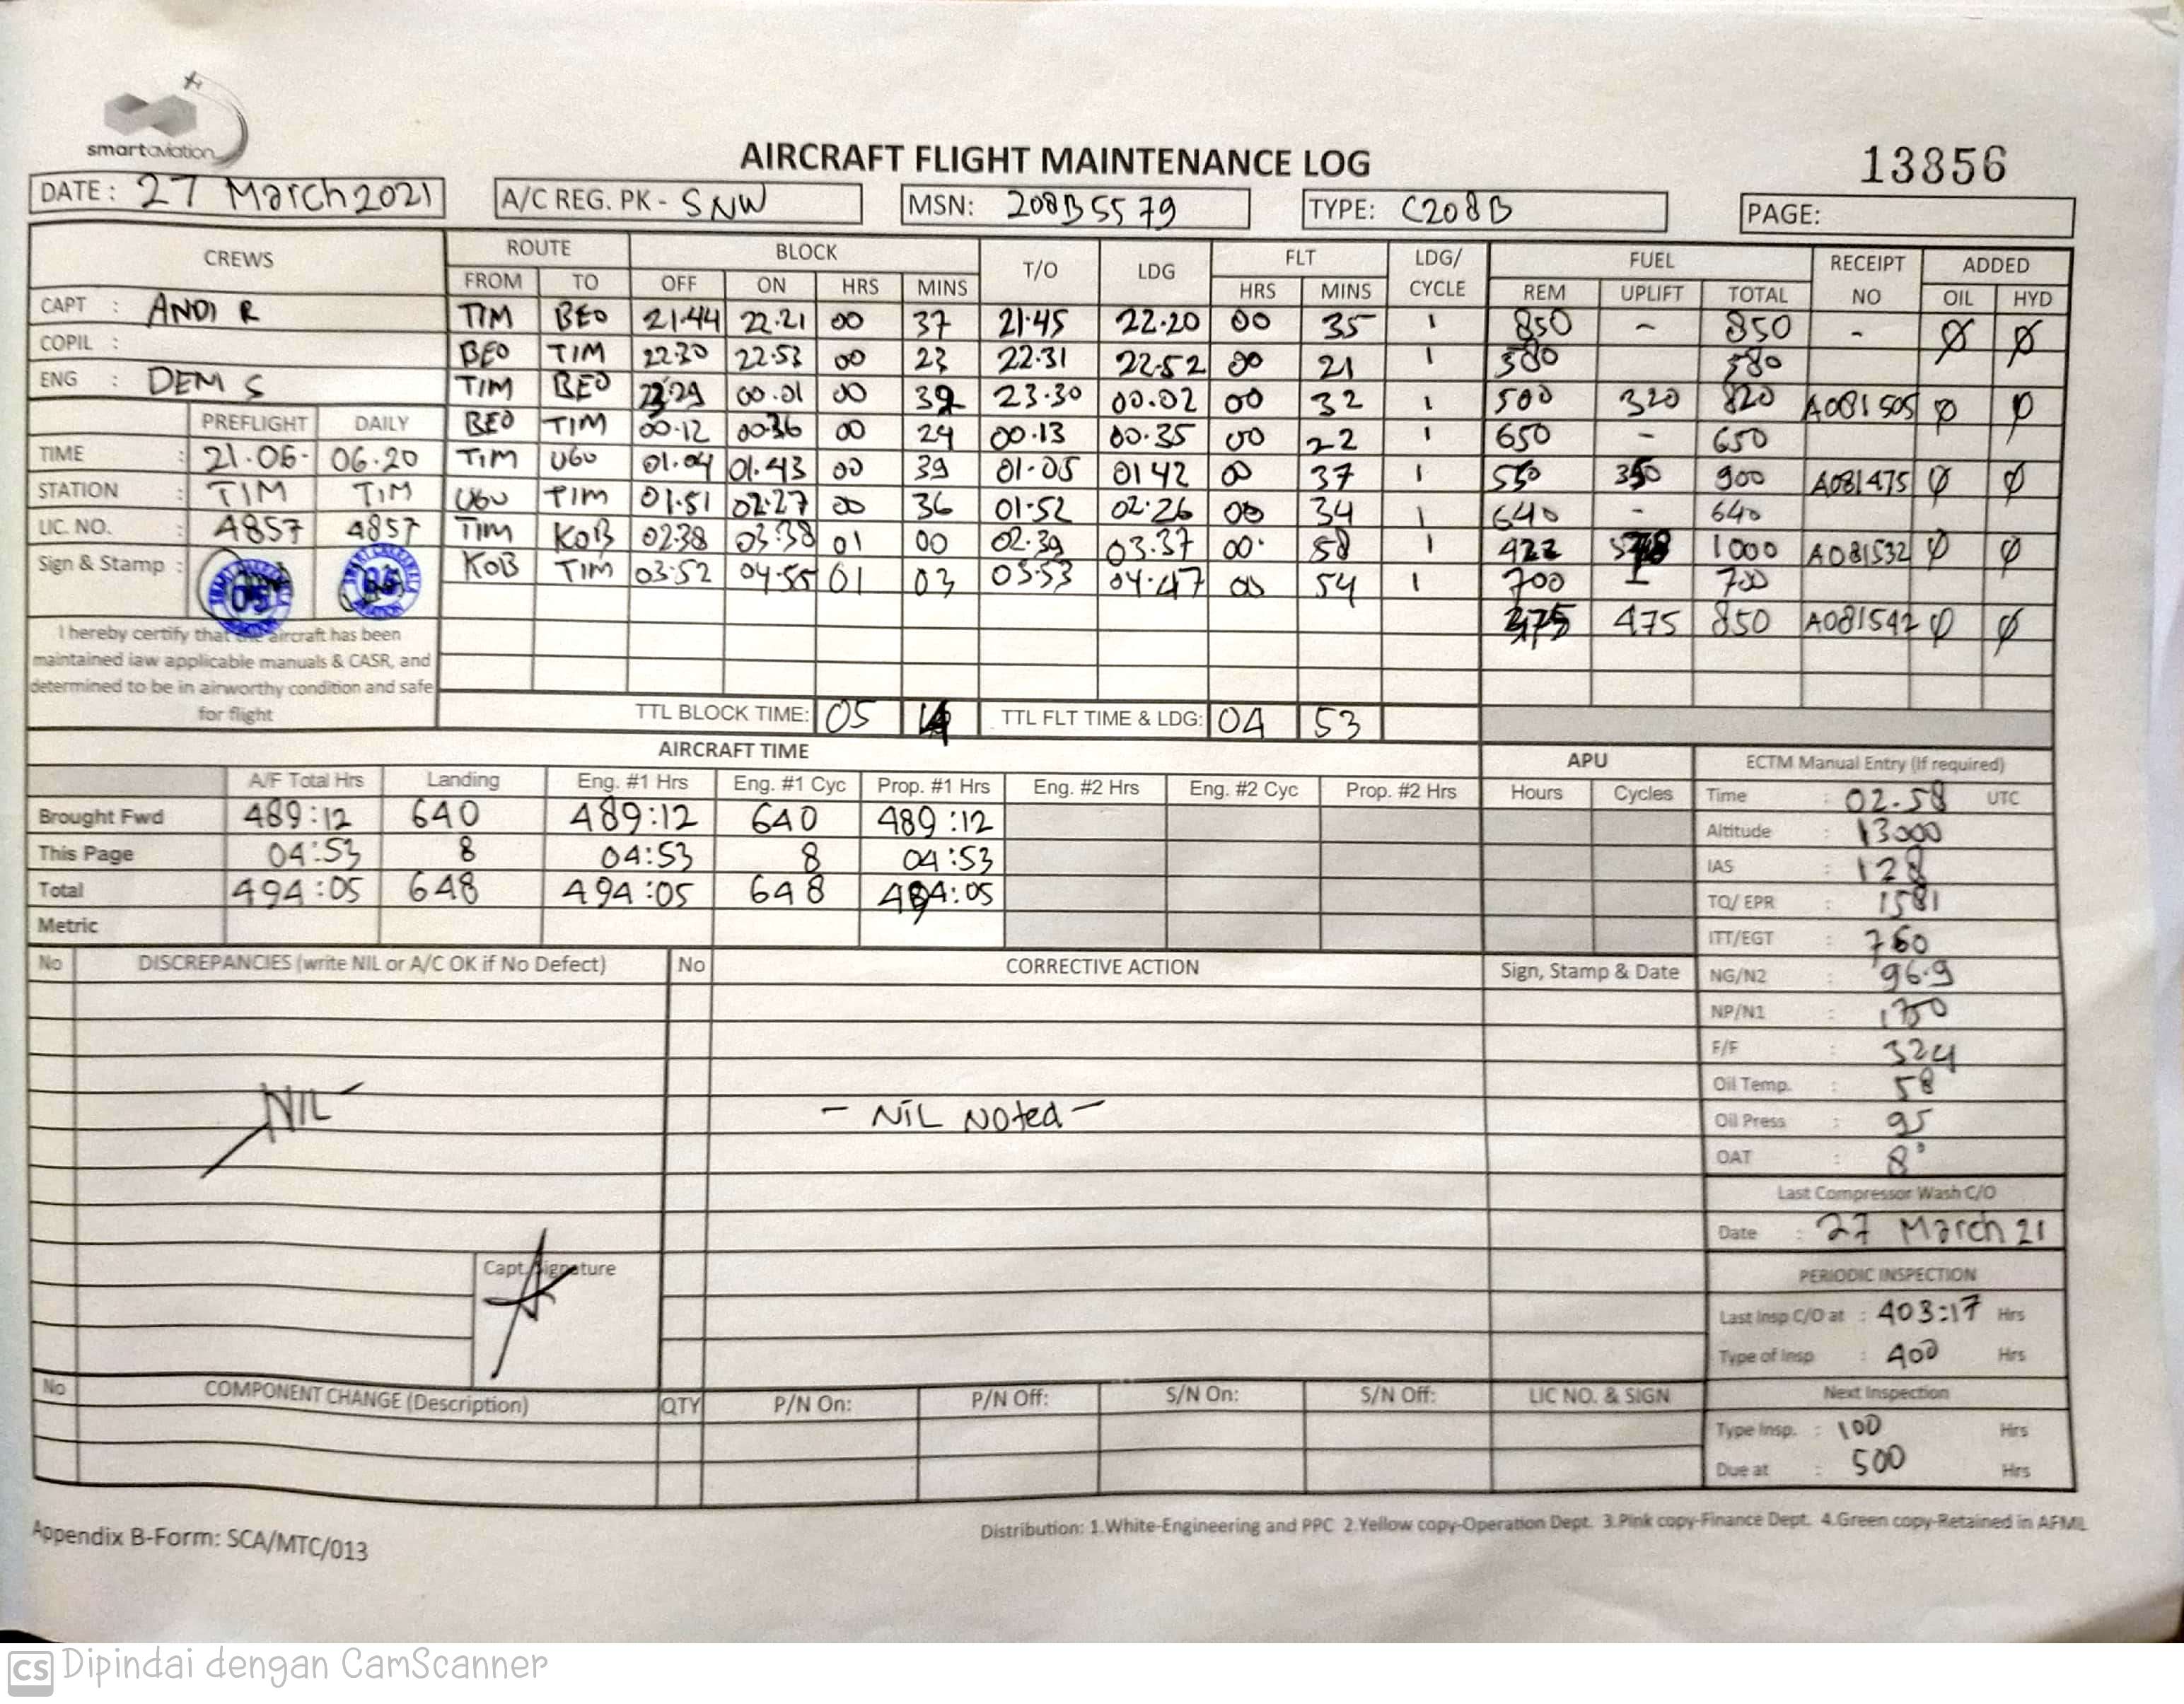 smart aviation
AIRCRAFT FLIGHT MAINTENANCE LOG
13856
DATE: 27 March 2021 A/C REG. PK - SNW MSN: 208B5579 TYPE: C208B PAGE:
CREWS ROUTE BLOCK T/O LDG FLT LDG/CYCLE FUEL RECEIPT NO ADDED
FROM TO OFF ON HRS MINS HRS MINS REM UPLIFT TOTAL OIL HYD
CAPT : ANDI R
COPIL :
ENG : DEM S
TIM BEO 21:44 22.21 00 37 21.45 22.20 00 35 1 850 - 850 - Ø Ø
BEO TIM 22:30 22.53 00 23 22.31 22.52 00 21 1 380 380
TIM BEO 23.29 00.01 00 23.30 00.02 00 32 1 500 320 820 A081505 Ø Ø
BEO TIM 00.12 00.36 00 24 00.13 00.35 00 22 1 650 - 650
TIM UGU 01.04 01.43 00 39 01.05 01 42 00 37 1 550 350 900 A081475 Ø Ø
UGU TIM 01.51 02.27 00 36 01.52 02.26 00 34 1 640 - 640
TIM KOB 02.38 03.38 01 00 02.39 03.37 00 58 1 422 578 1000 A081532 Ø Ø
KOB TIM 03.52 04.55 01 03 03.53 04.47 00 54 1 700 - 700
375 475 850 A081542 Ø Ø
PREFLIGHT DAILY
TIME : 21.06 06.20
STATION : TIM TIM
LIC. NO. : 4857 4857
Sign & Stamp :
I hereby certify that the aircraft has been
maintained iaw applicable manuals & CASR, and
determined to be in airworthy condition and safe
for flight
TTL BLOCK TIME: 05 TTL FLT TIME & LDG: 04 53
AIRCRAFT TIME APU
A/F Total Hrs Landing Eng. #1 Hrs Eng. #1 Cyc Prop. #1 Hrs Eng. #2 Hrs Eng. #2 Cyc Prop. #2 Hrs Hours Cycles
Brought Fwd 489:12 640 489:12 640 489:12
This Page 04:53 8 04:53 8 04:53
Total 494:05 648 494:05 648 494:05
Metric
ECTM Manual Entry (If required)
Time : 02.58 UTC
Altitude : 13000
IAS : 128
TQ/ EPR : 1581
ITT/EGT : 760
NG/N2 : 96.9
NP/N1 : 1750
F/F : 324
Oil Temp. : 58
Oil Press : 95
OAT : 8°
Last Compressor Wash C/O
Date : 27 March 21
PERIODIC INSPECTION
Last Insp C/O at : 403:17 Hrs
Type of Insp : 400 Hrs
Next Inspection
Type Insp. : 100 Hrs
Due at : 500 Hrs
No DISCREPANCIES (write NIL or A/C OK if No Defect) No CORRECTIVE ACTION Sign, Stamp & Date
NIL
- NIL Noted -
Capt. Signature
No COMPONENT CHANGE (Description) QTY P/N On: P/N Off: S/N On: S/N Off: LIC NO. & SIGN
Appendix B-Form: SCA/MTC/013
Distribution: 1.White-Engineering and PPC 2.Yellow copy-Operation Dept. 3.Pink copy-Finance Dept. 4.Green copy-Retained in AFML
CS Dipindai dengan CamScanner